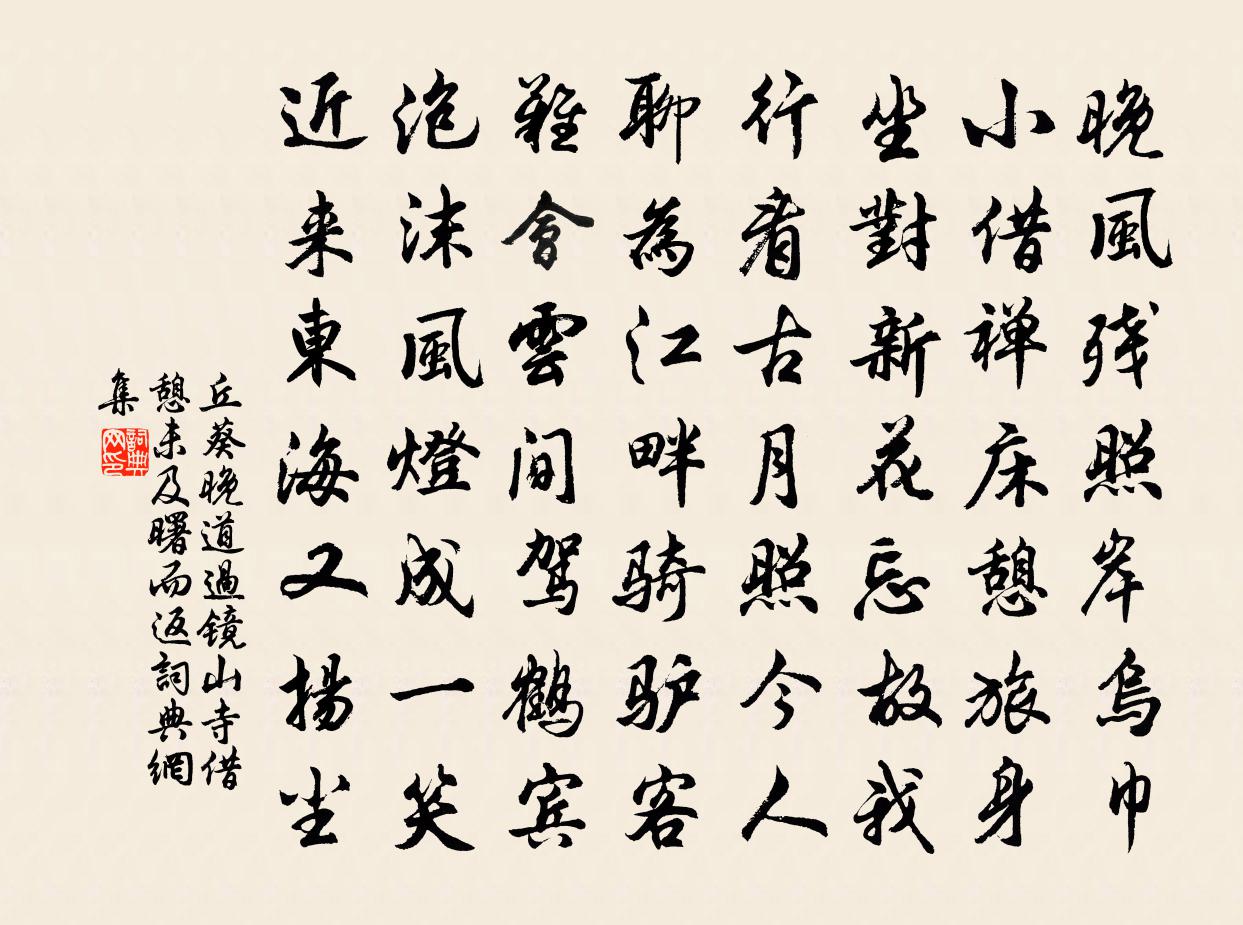 晚風残照岸烏巾
小借禅床憩旅身
坐對新花忘故我
行看古月照今人
聊為江畔骑驴客
難會雲间驾鹤宾
泡沫風燈成一笑
近来東海又揚尘
丘葵晚道過鏡山寺借
憩未及曙而返詞典網
集
詞典網印